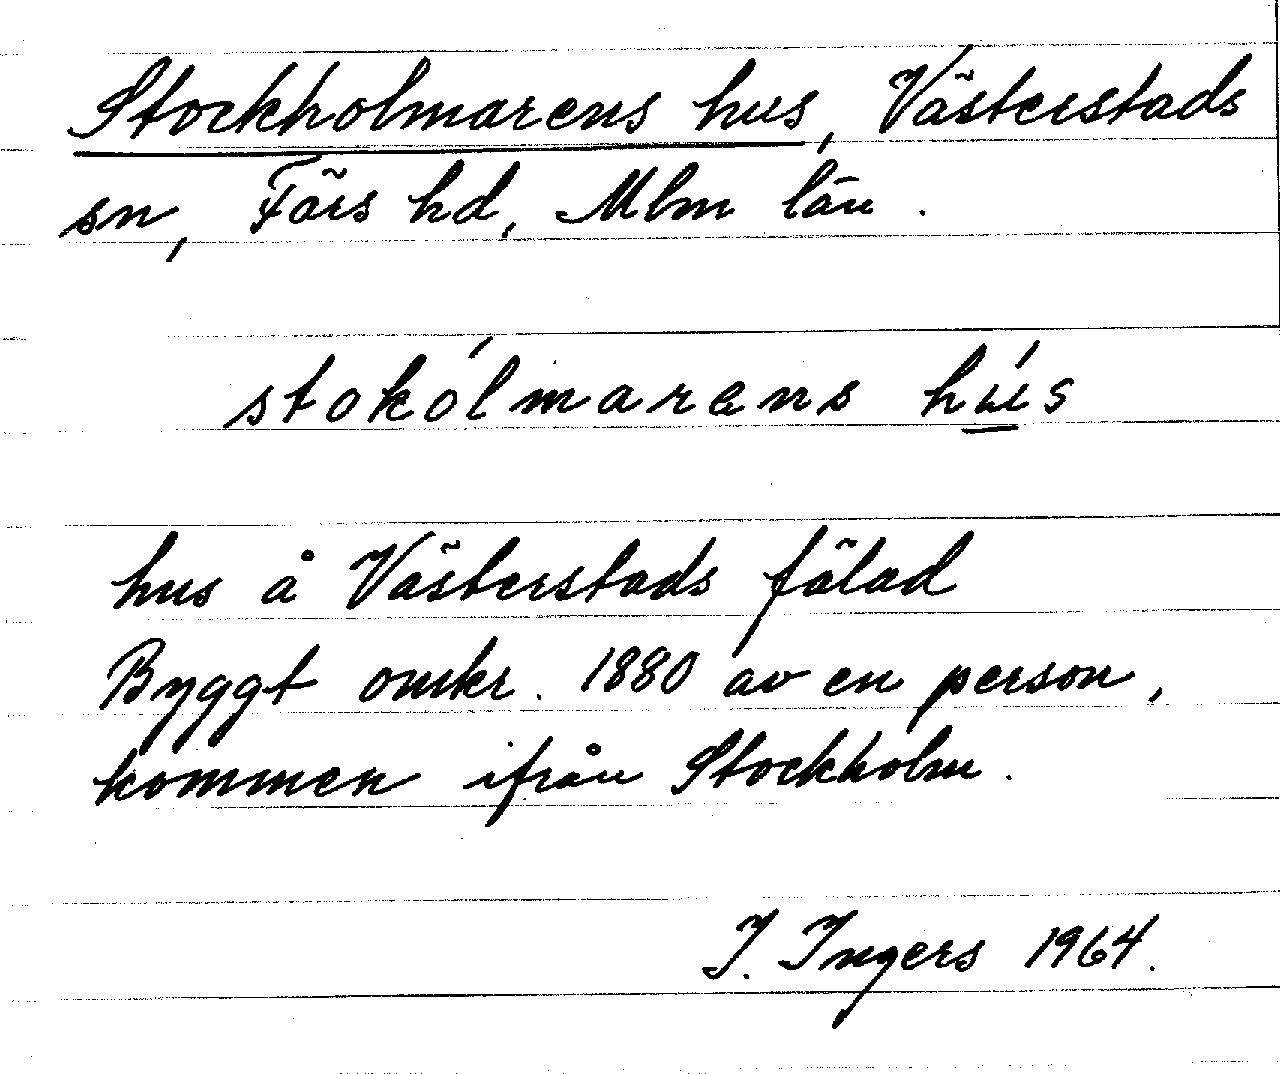 Stockholmarens hus, Västerstads
sn, Färs hd, Mlm län.
stokólmarens hús
hus å Västerstads fälad
Byggt omkr. 1880 av en person,
kommen ifrån Stockholm.
I. Ingers 1964.